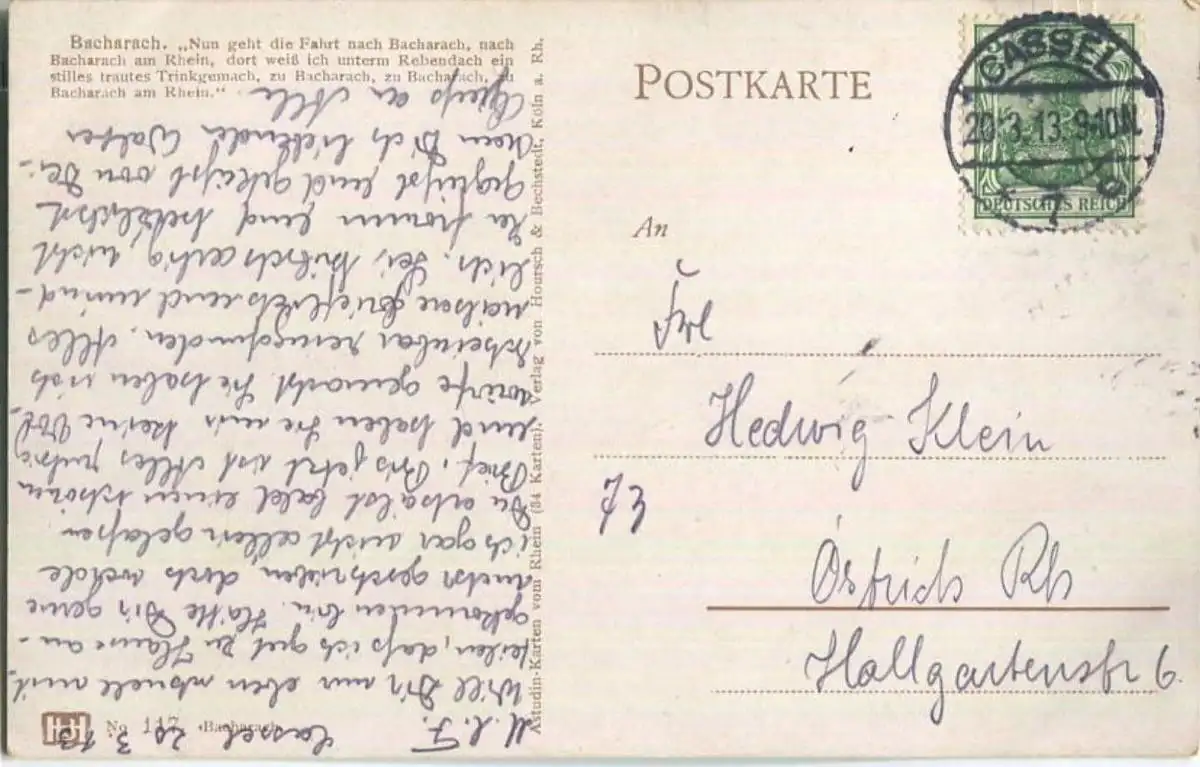 Bacharach. „Nun geht die Fahrt nach Bacharach, nach
Bacharach am Rhein, dort weiß ich unterm Rebendach ein
stilles trautes Trinkgemach, zu Bacharach, zu Bacharach, zu
Bacharach am Rhein.“
POSTKARTE
CASSEL
20.3.13.9-10N.
* 1 b
DEUTSCHES REICH
An
Frl
Hedwig Klein
73
Östrich Rh
Hallgartenstr 6.
Astudin-Karten vom Rhein (34 Karten). Verlag von Hoursch & Bechstedt, Köln a. Rh.
HH No 117 «Bacharach»
Cassel 20 3 13
M. l. F.
Will Dir nur eben schnell mit-
teilen, daß ich gut zu Hause an-
gekommen bin. Hätte Dir gerne
geschrieben, doch
ich gar nicht allein gelassen
Du erhälst bald einen schönen
Brief. Bis jetzt ist Alles ruhig
und haben Sie mir keine Vor-
würfe gemacht. Sie haben sich
scheinbar reingefunden. Alles
und münd-
lich. Sei, nicht
zu und herzlichst
gegrüßt und geküsst von De-
Dich liebenden Walter
Gruß an Alle